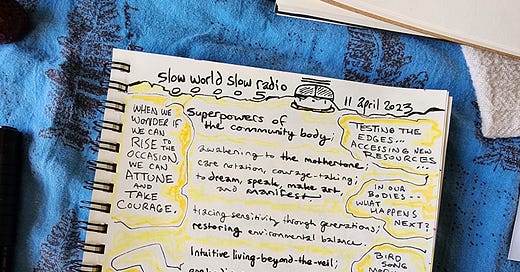 slow world slow radio
11 april 2023
WHEN WE
WONDER IF
WE CAN
RISE TO
THE
OCCASION,
WE CAN
ATTUNE
AND
TAKE
COURAGE.
Superpowers of
the community body:
awakening to the mothertone;
care notation, courage-taking;
to dream, speak, make art,
and manifest
tracing sensitivity through generations;
restoring environmental balance.
Intuitive living-beyond-the-veil;
TESTING THE
EDGES...
ACCESSING NEW
RESOURCES...
IN OUR
BODIES...
WHAT
HAPPENS
NEXT?
BIRD
SONG